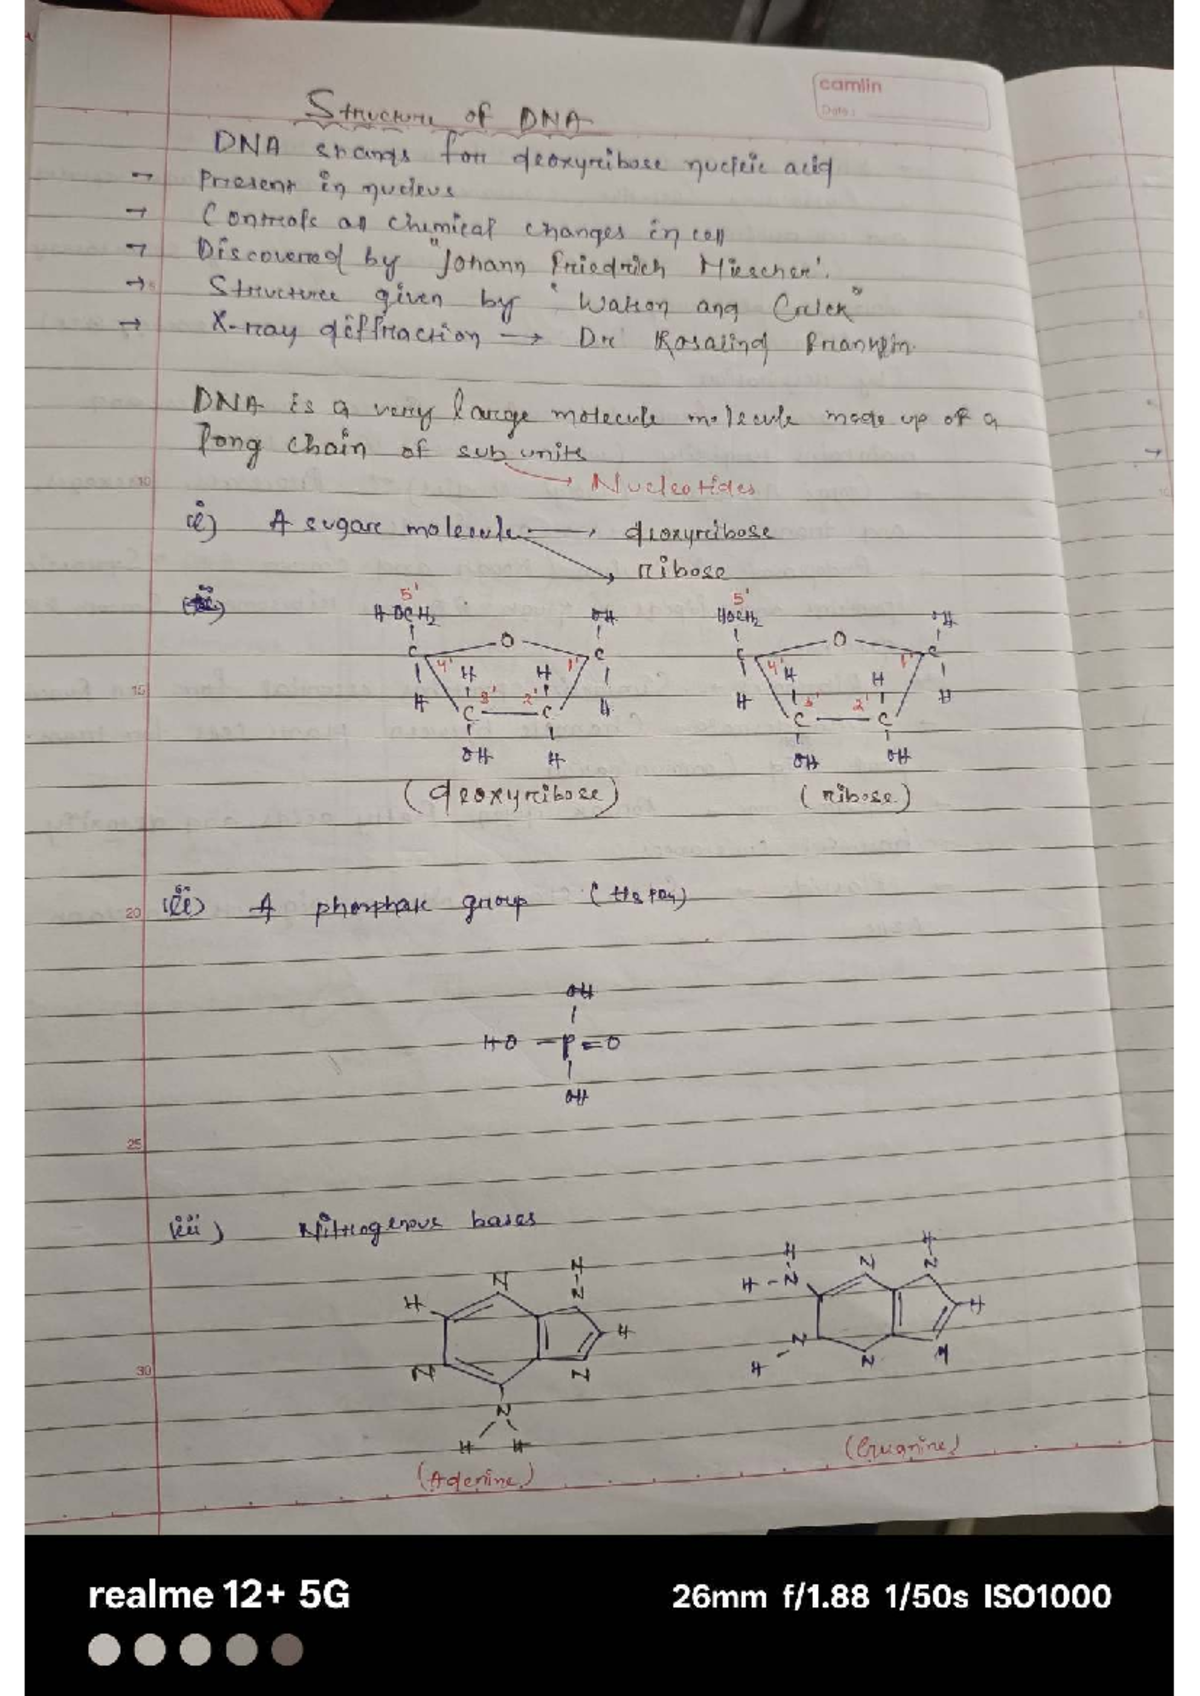 camlin
Date:
Structure of DNA
DNA stands for deoxyribose nucleic acid
→ Present in nucleus
→ Controls all chemical changes in cell
→ Discovered by "Johann Friedrich Miescher".
→ Structure given by "Watson and Crick"
→ X-ray diffraction → Dr Rosalind Franklin.
DNA is a very large molecule molecule made up of a
long chain of sub units
→ Nucleotides
10
(i) A sugar molecule → deoxyribose
→ ribose
5' 5'
HOCH2 OH HOCH2 OH
O O
C 4' 1' C C 4' 1' C
H H H H
15
H 3' 2' H H 3' 2' H
C C C C
OH H OH OH
(deoxyribose) (ribose)
20 (ii) A phosphate group (H3PO4)
OH
HO - P = O
OH
25
(iii) Nitrogenous bases
H H
N H-N N N
H N
H N H H
N
N N H
30
N
N
H H
(Adenine) (Guanine)
realme 12+ 5G
26mm f/1.88 1/50s ISO1000